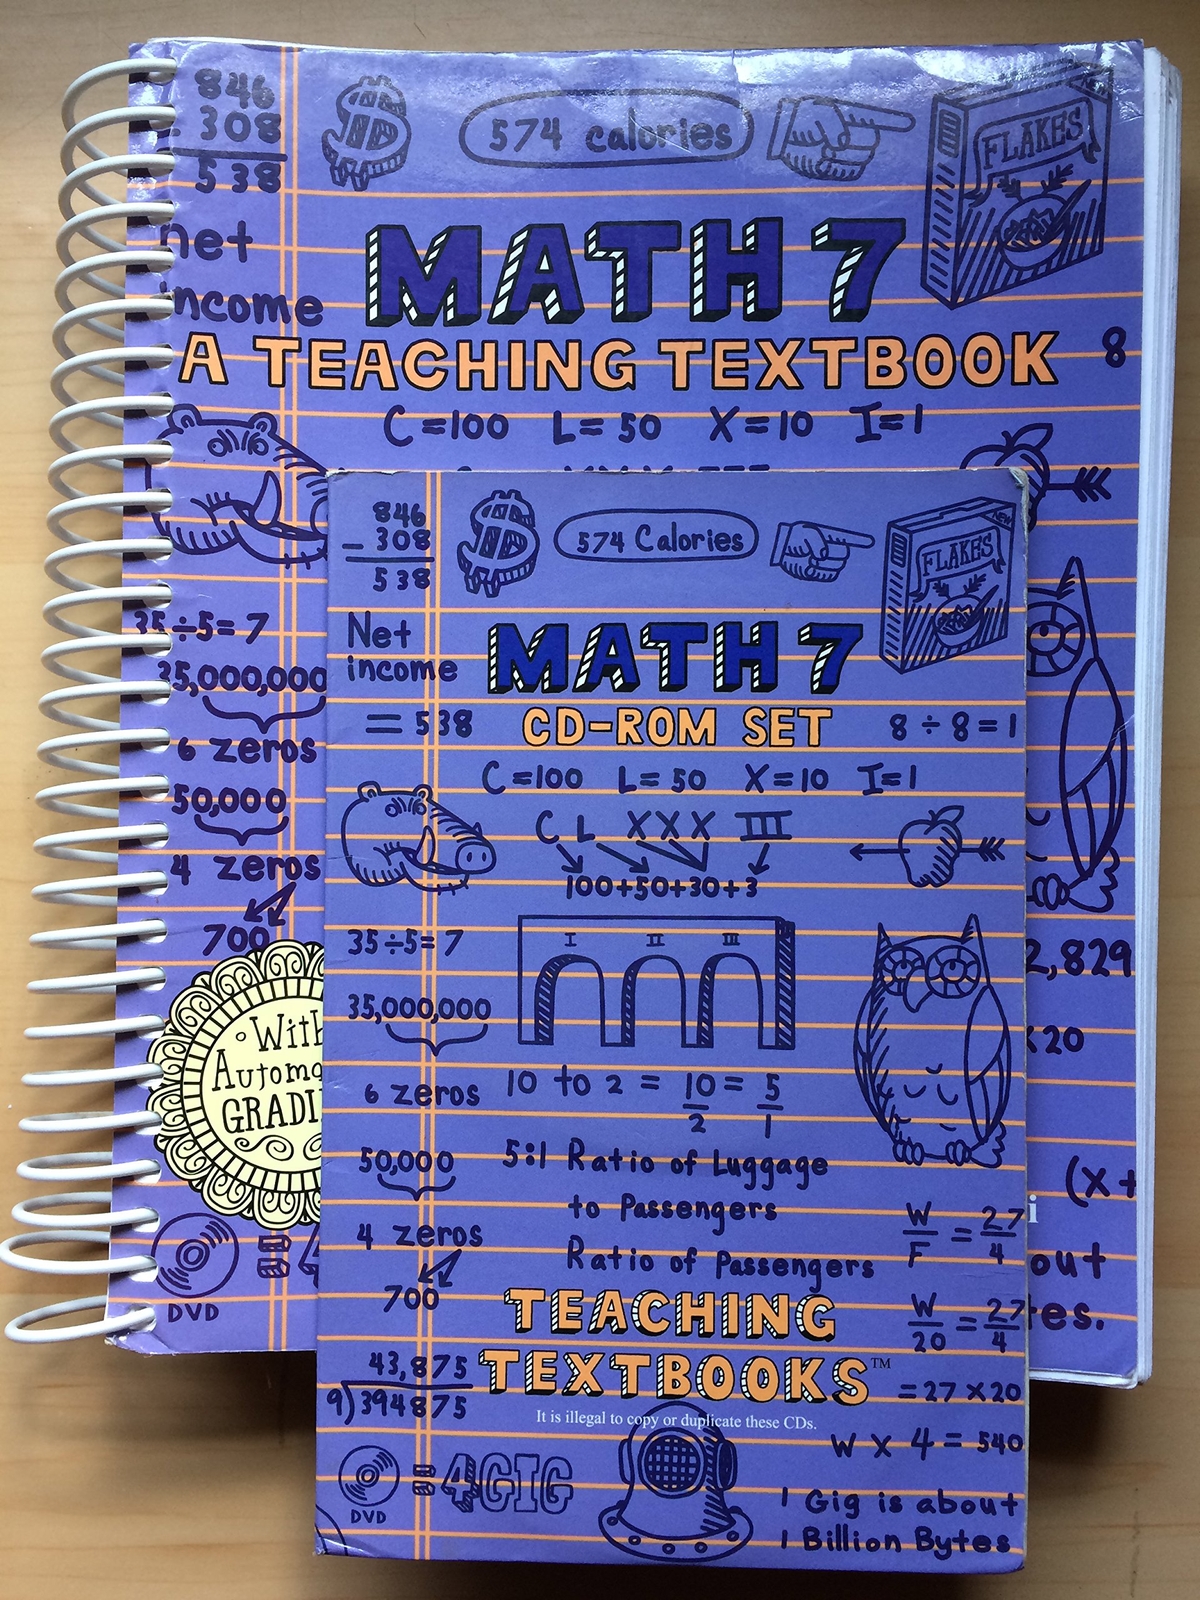 846
308
538
574 calories
FLAKES
net
income
MATH 7
A TEACHING TEXTBOOK
8
C=100 L=50 X=10 I=1
35÷5=7
35,000,000
6 zeros
50,000
4 zeros
700
With
GRADI
DVD
2,829
20
(x+
out
846
- 308
538
574 Calories
NEW
FLAKES
Net
income
= 538
MATH 7
CD-ROM SET
8 ÷ 8 = 1
C=100 L=50 X=10 I=1
C L XXX III
100+50+30+3
I II III
35÷5=7
35,000,000
6 zeros
10 to 2 = 10/2 = 5/1
50,000
5:1 Ratio of Luggage
to Passengers
4 zeros
Ratio of Passengers
W/F = 27/4
700
TEACHING
TEXTBOOKS™
W/20 = 27/4
= 27 x 20
43,875
9)394875
It is illegal to copy or duplicate these CDs.
W x 4 = 540
DVD
= 4GIG
1 Gig is about
1 Billion Bytes